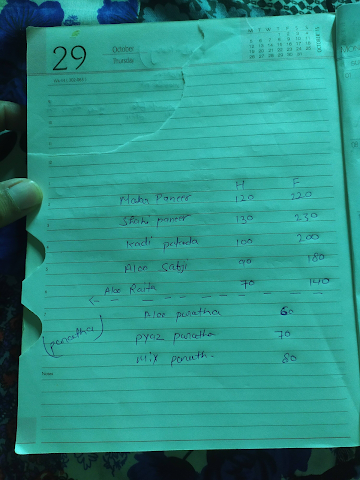 29
October
Thursday
M T W T F S S
H F
Matar Paneer 120 220
Shahi paneer 130 230
Kadi pakoda 100 200
Aloo Sabji 90 180
Aloo Raita 70 140
(paratha)
Aloo paratha 60
pyaz paratha 70
Mix parath- 80
Notes